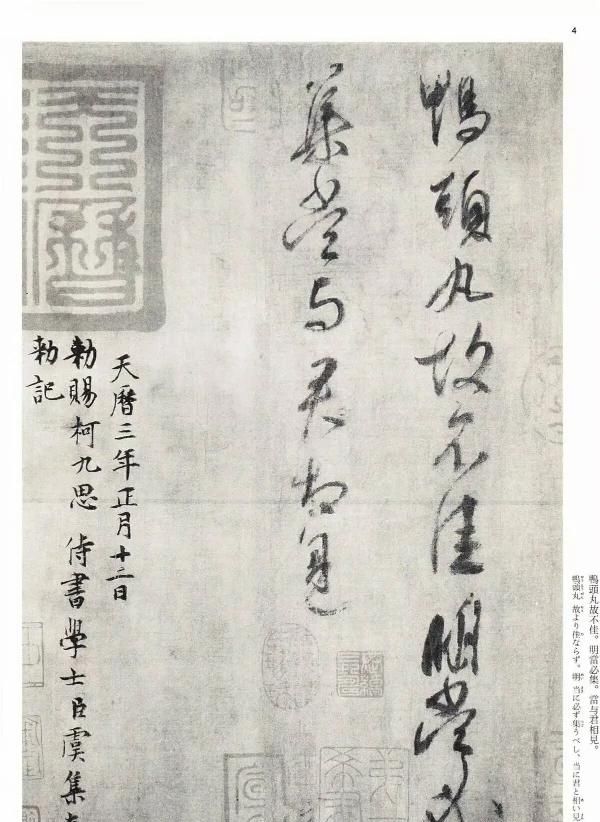 4
鴨頭丸故不佳明當必
集當与君相見
天曆三年正月十二日
勑賜柯九思 侍書學士臣虞集奉
勑記
天曆
鴨頭丸故不佳。明當必集。當与君相見。
鴨頭丸 故より佳ならず。明 当に必ず集うべし、当に君と相い見